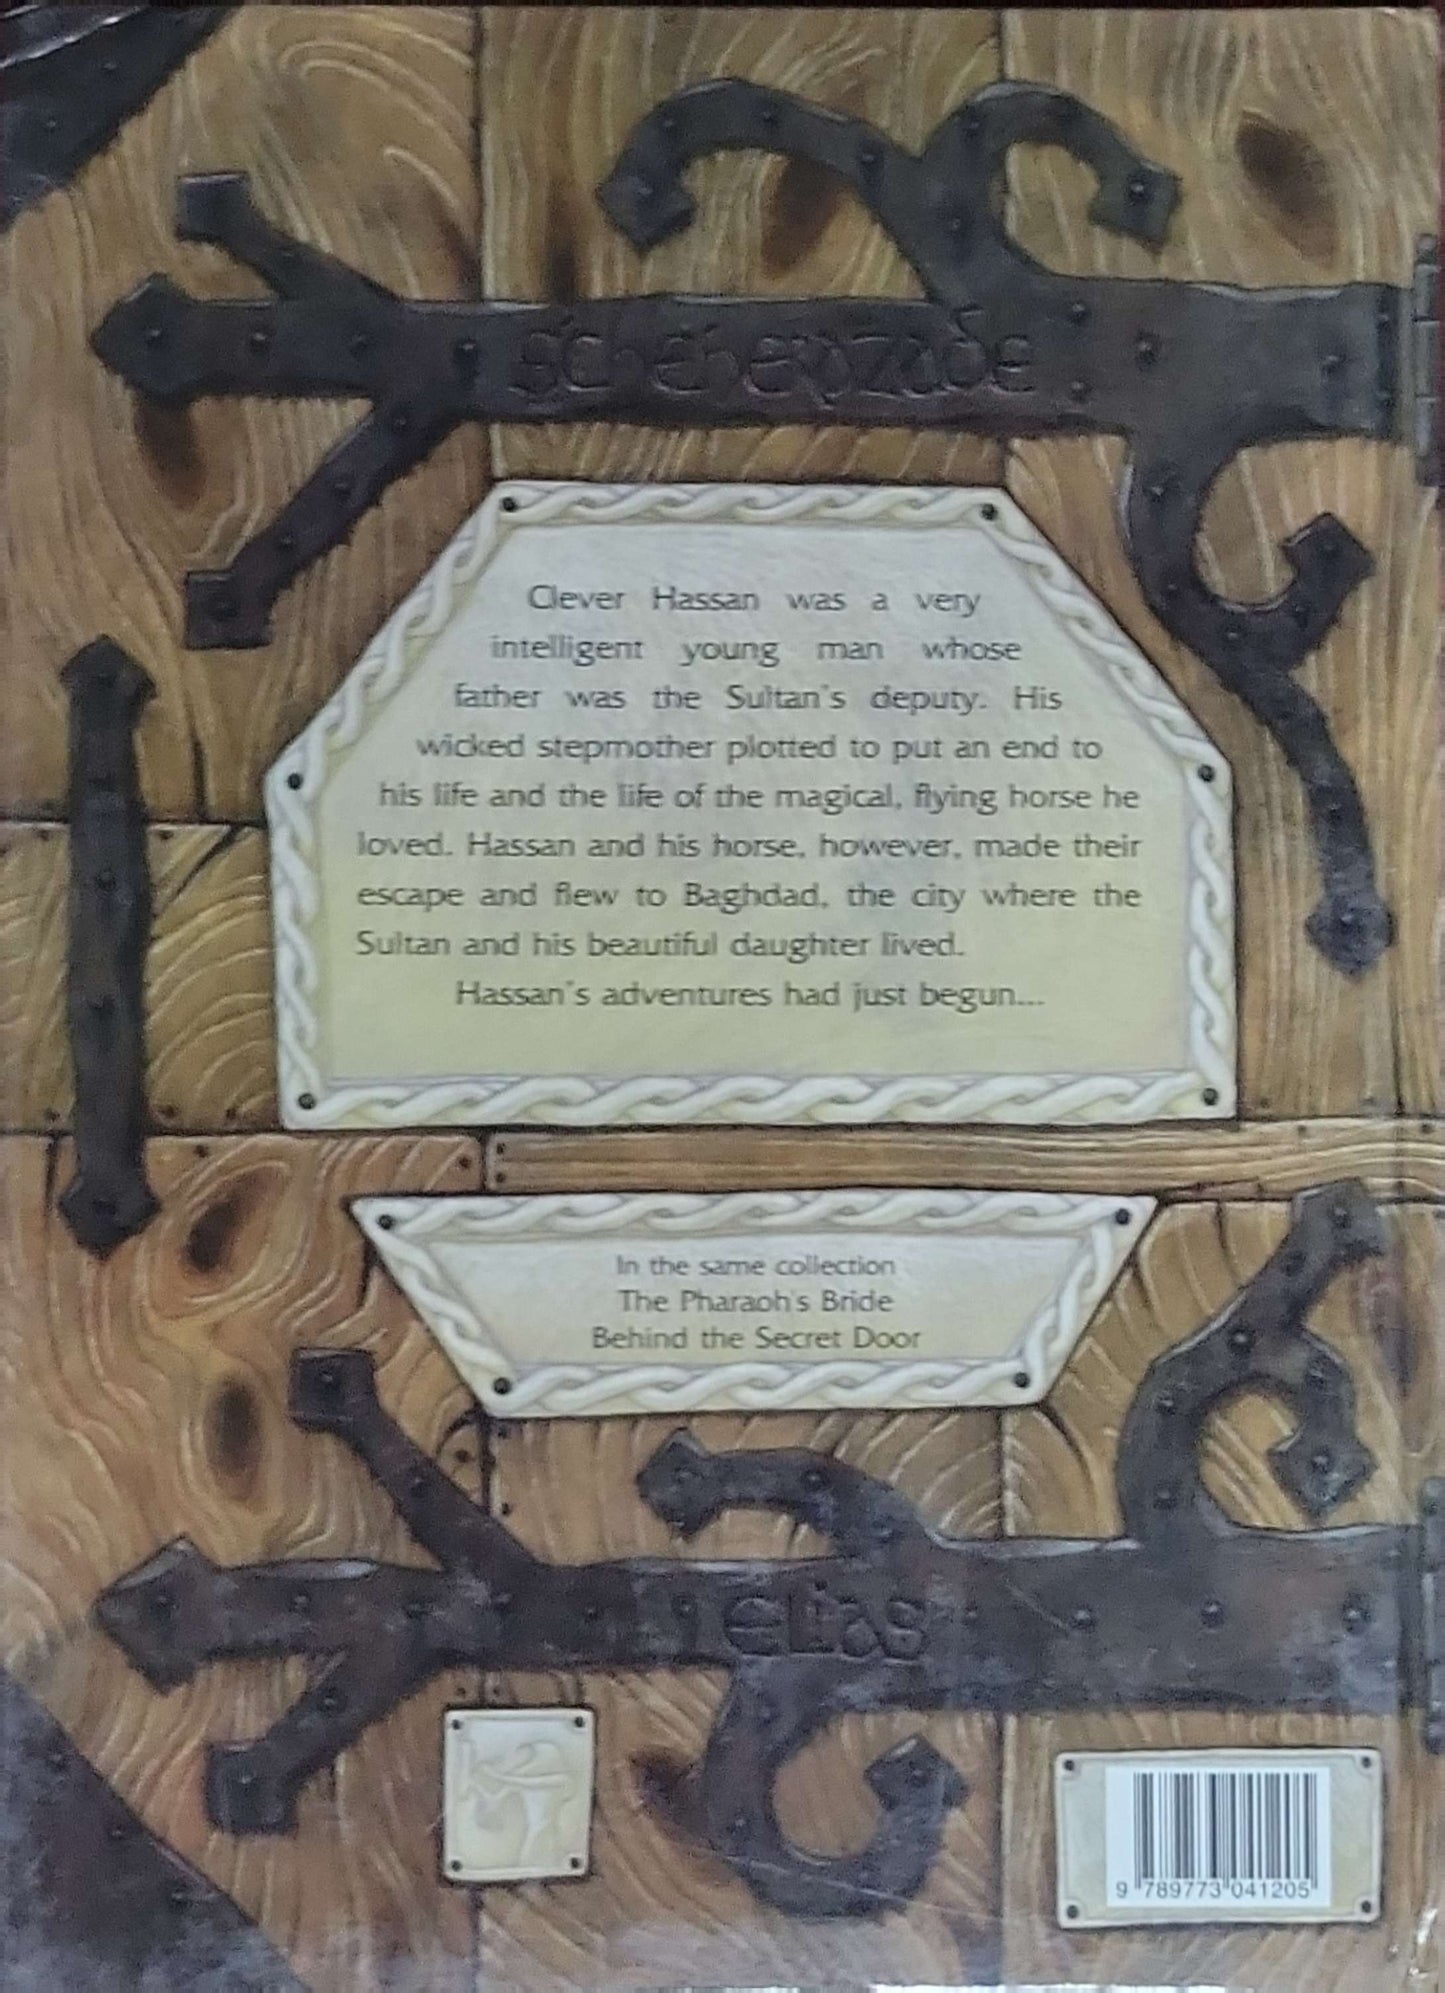 Scheherazade
Clever Hassan was a very
intelligent young man whose
father was the Sultan's deputy. His
wicked stepmother plotted to put an end to
his life and the life of the magical, flying horse he
loved. Hassan and his horse, however, made their
escape and flew to Baghdad, the city where the
Sultan and his beautiful daughter lived.
Hassan's adventures had just begun...
In the same collection
The Pharaoh's Bride
Behind the Secret Door
elias
9 789773 041205